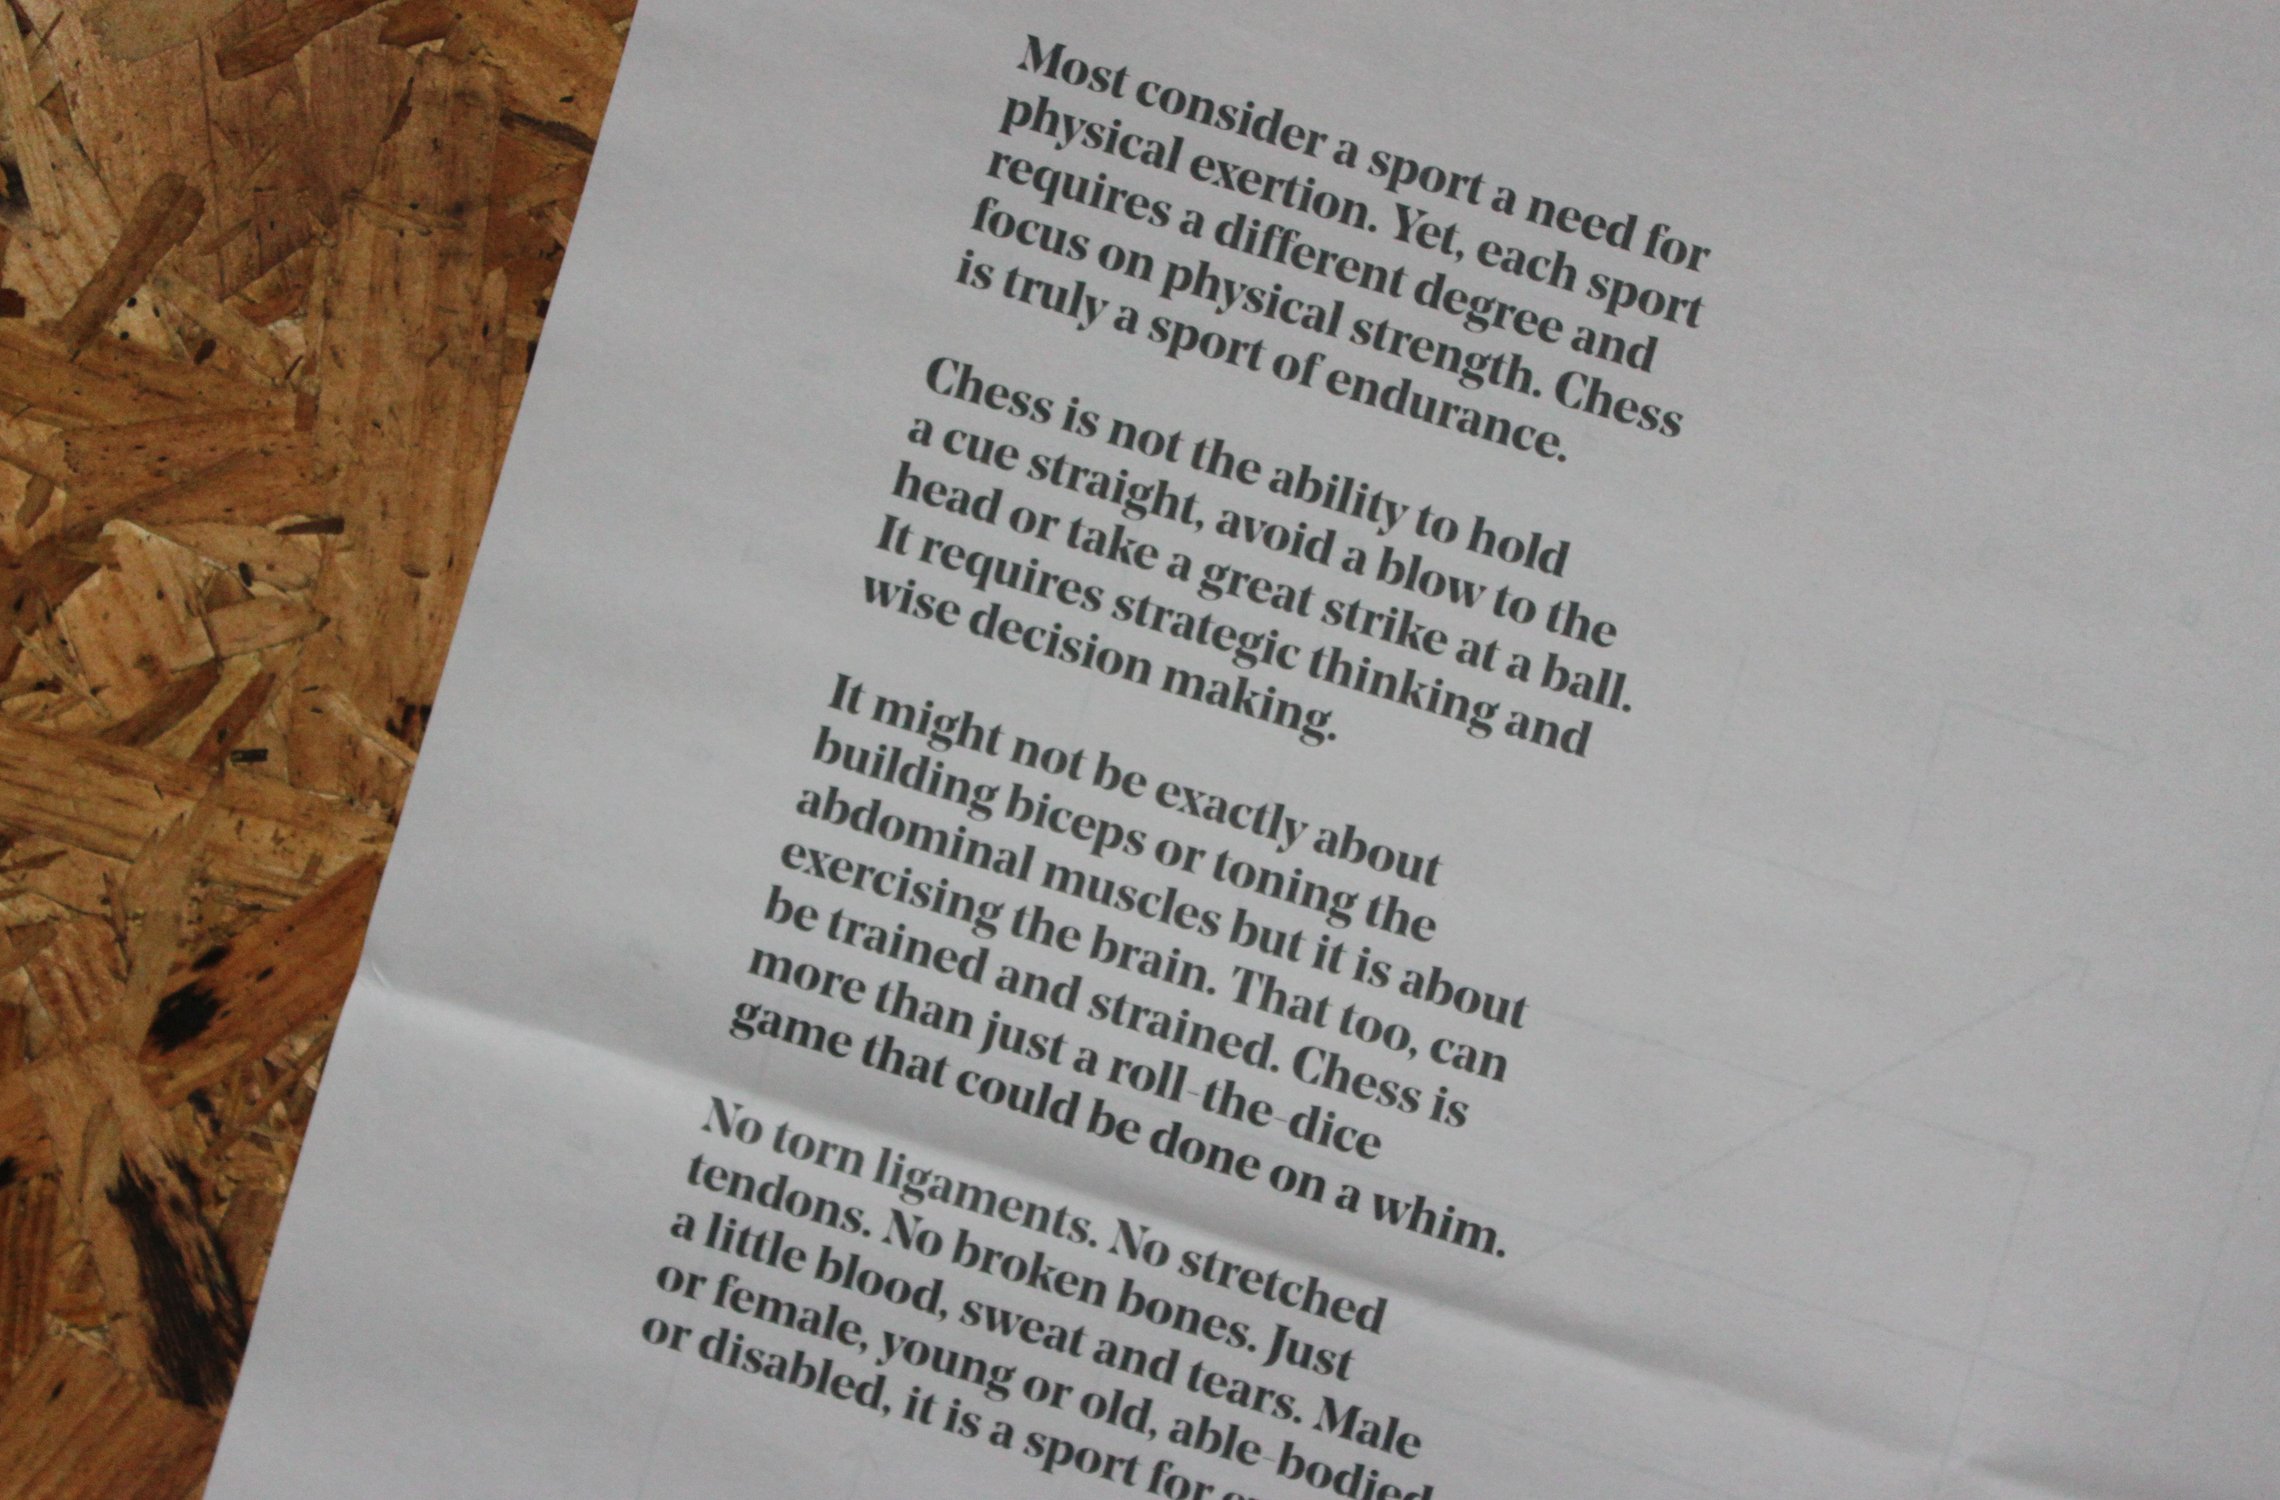 Most consider a sport a need for
physical exertion. Yet, each sport
requires a different degree and
focus on physical strength. Chess
is truly a sport of endurance.
Chess is not the ability to hold
a cue straight, avoid a blow to the
head or take a great strike at a ball.
It requires strategic thinking and
wise decision making.
It might not be exactly about
building biceps or toning the
abdominal muscles but it is about
exercising the brain. That too, can
be trained and strained. Chess is
more than just a roll-the-dice
game that could be done on a whim.
No torn ligaments. No stretched
tendons. No broken bones. Just
a little blood, sweat and tears. Male
or female, young or old, able-bodied
or disabled, it is a sport for